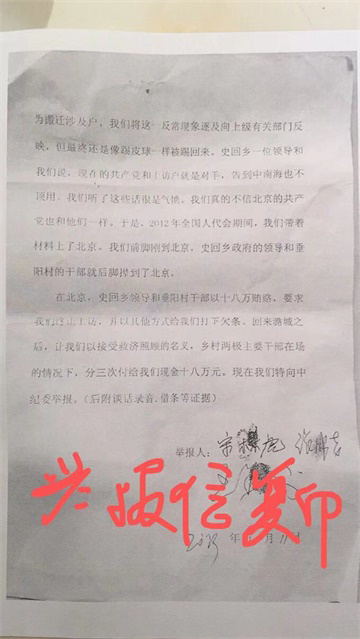 为搬迁涉及户，我们将这一反常现象逐及向上级有关部门反
映，但最终还是像踢皮球一样被踢回来。史回乡一位领导和
我们说，现在的共产党和上访户就是对手，告到中南海也不
顶用。我们听了这些话很是气愤。我们真的不信北京的共产
党也和他们一样。于是，2012年全国人代会期间，我们带着
材料上了北京。我们前脚刚到北京，史回乡政府的领导和垂
阳村的干部就后脚撵到了北京。
在北京，史回乡领导和垂阳村干部以十八万贿赂，要求
我们终止上访，并以其他方式给我们打下欠条。回来潞城之
后，让我们以接受救济照顾的名义，乡村两极主要干部在场
的情况下，分三次付给我们现金十八万元。现在我们特向中
纪委举报。（后附谈话录音.借条等证据）
举报人：宋
举报信复印
年 月 11日